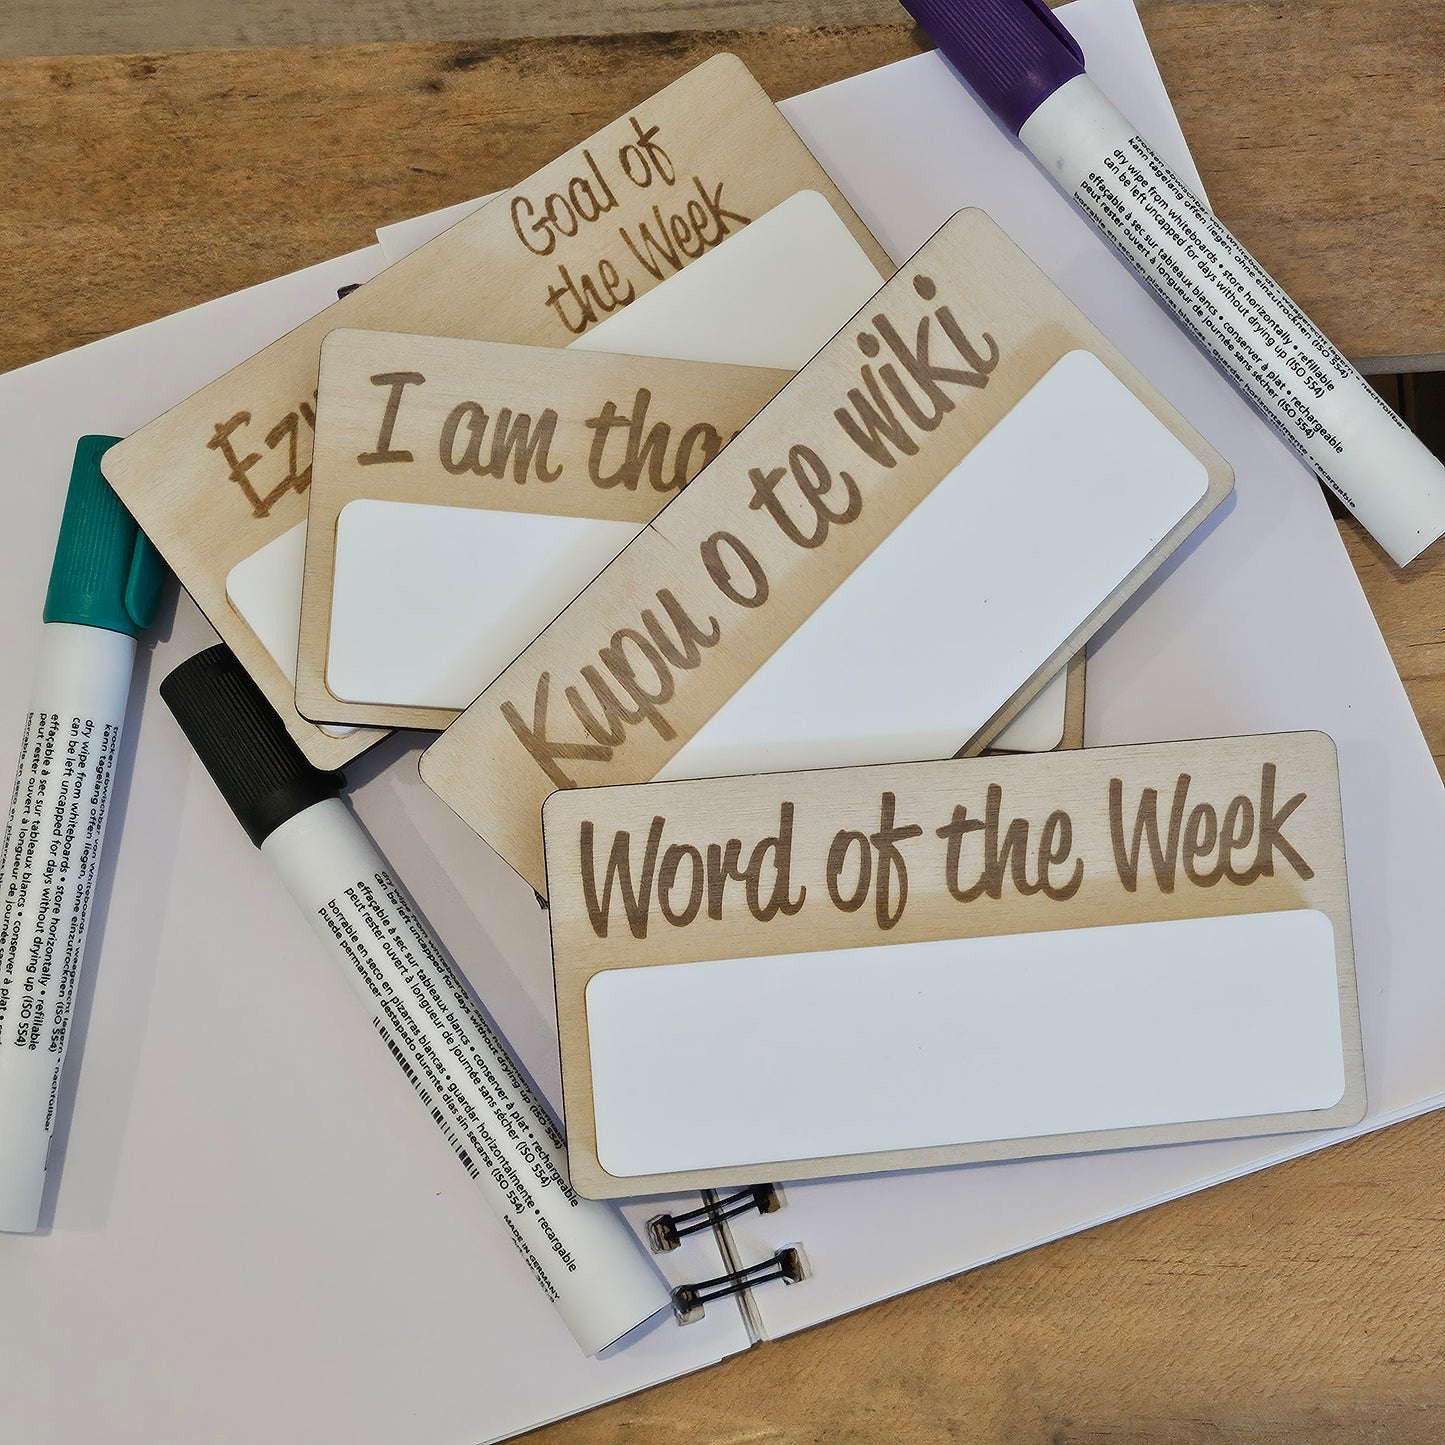 Goal of
the Week
I am
Kupu o te wiki
Word of the Week
trocken abwischbar von Whiteboards • waagerecht lagern • nachfüllbar
kann tagelang offen liegen, ohne einzutrocknen (ISO 554)
dry wipe from whiteboards • store horizontally • refillable
can be left uncapped for days without drying up (ISO 554)
effaçable à sec sur tableaux blancs • conserver à plat • rechargeable
peut rester ouvert à longueur de journée sans sécher (ISO 554)
borrable en seco en pizarras blancas • guardar horizontalmente • recargable
trocken abwischbar von Whiteboards • waagerecht lagern • nachfüllbar
kann tagelang offen liegen, ohne einzutrocknen (ISO 554)
dry wipe from whiteboards • store horizontally • refillable
can be left uncapped for days without drying up (ISO 554)
effaçable à sec sur tableaux blancs • conserver à plat •
peut rester ouvert à longueur de journée
borrable en seco en pizarras
dry wipe from whiteboards • store horizontally •
can be left uncapped for days without drying up (ISO 554)
effaçable à sec sur tableaux blancs • conserver à plat • rechargeable
peut rester ouvert à longueur de journée sans sécher (ISO 554)
borrable en seco en pizarras blancas • guardar horizontalmente • recargable
puede permanecer destapado durante días sin secarse (ISO 554)
MADE IN GERMANY